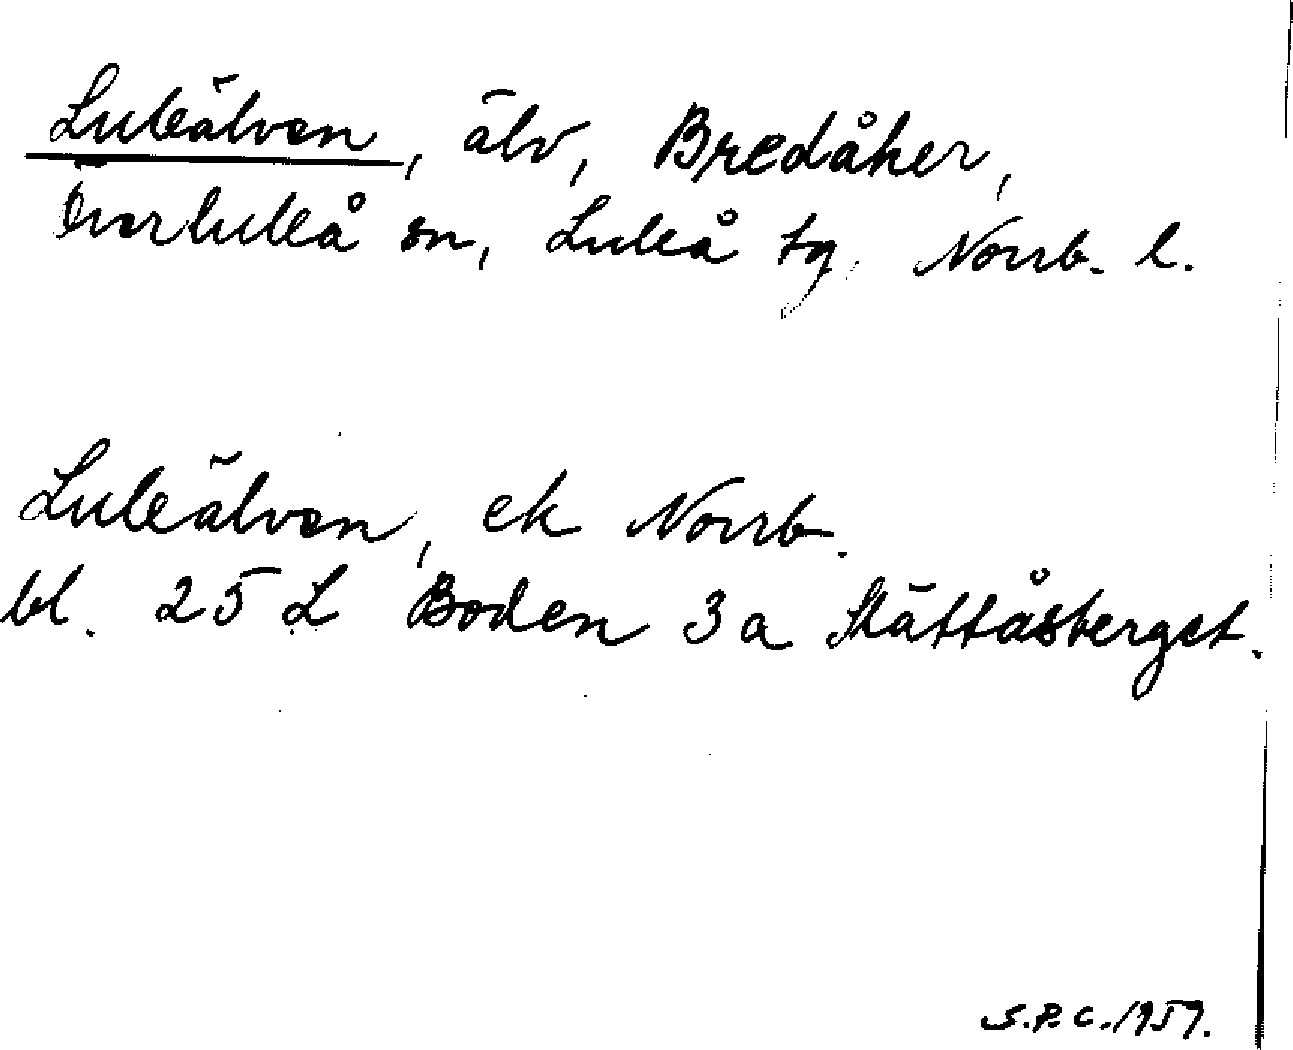 Luleälven, älv, Bredåker,
Överluleå sn, Luleå tg, Norrb. l.
Luleälven, ek Norrb.
bl. 25 L Boden 3a Slättåsberget.
S.P.C. 1959.